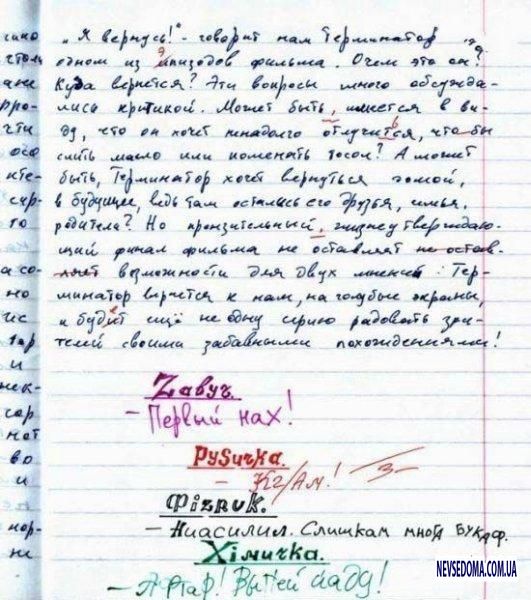 „Я вернусь!" - говорит нам Терминатор в
одном из эпизодов фильма. О чем это он?
Куда вернется? Эти вопросы много обсужда-
лись критикой. Может быть, имеется в ви-
ду, что он хочет ненадолго отлучиться, что бы
слить масло или поменять тосол? А может
быть, Терминатор хочет вернуться домой,
в будущее, ведь там остались его друзья, семья,
родители? Но пронзительный, жизнеутверждаю-
щий финал фильма не оставляет не остав-
ляет возможности для двух мнений: Тер-
минатор вернется к нам, на голубые экраны,
и будет ещё не одну серию радовать зри-
телей своими забавными похождениями!
Zавуч.
- Первый нах!
РуSичка.
- КГ/АМ! 3-
Фiзрuк.
- Ниасилил. Слишкам многа букаф.
Хiмичка.
- Афтар! Выпей йаду!
NEVSEDOMA.COM.UA